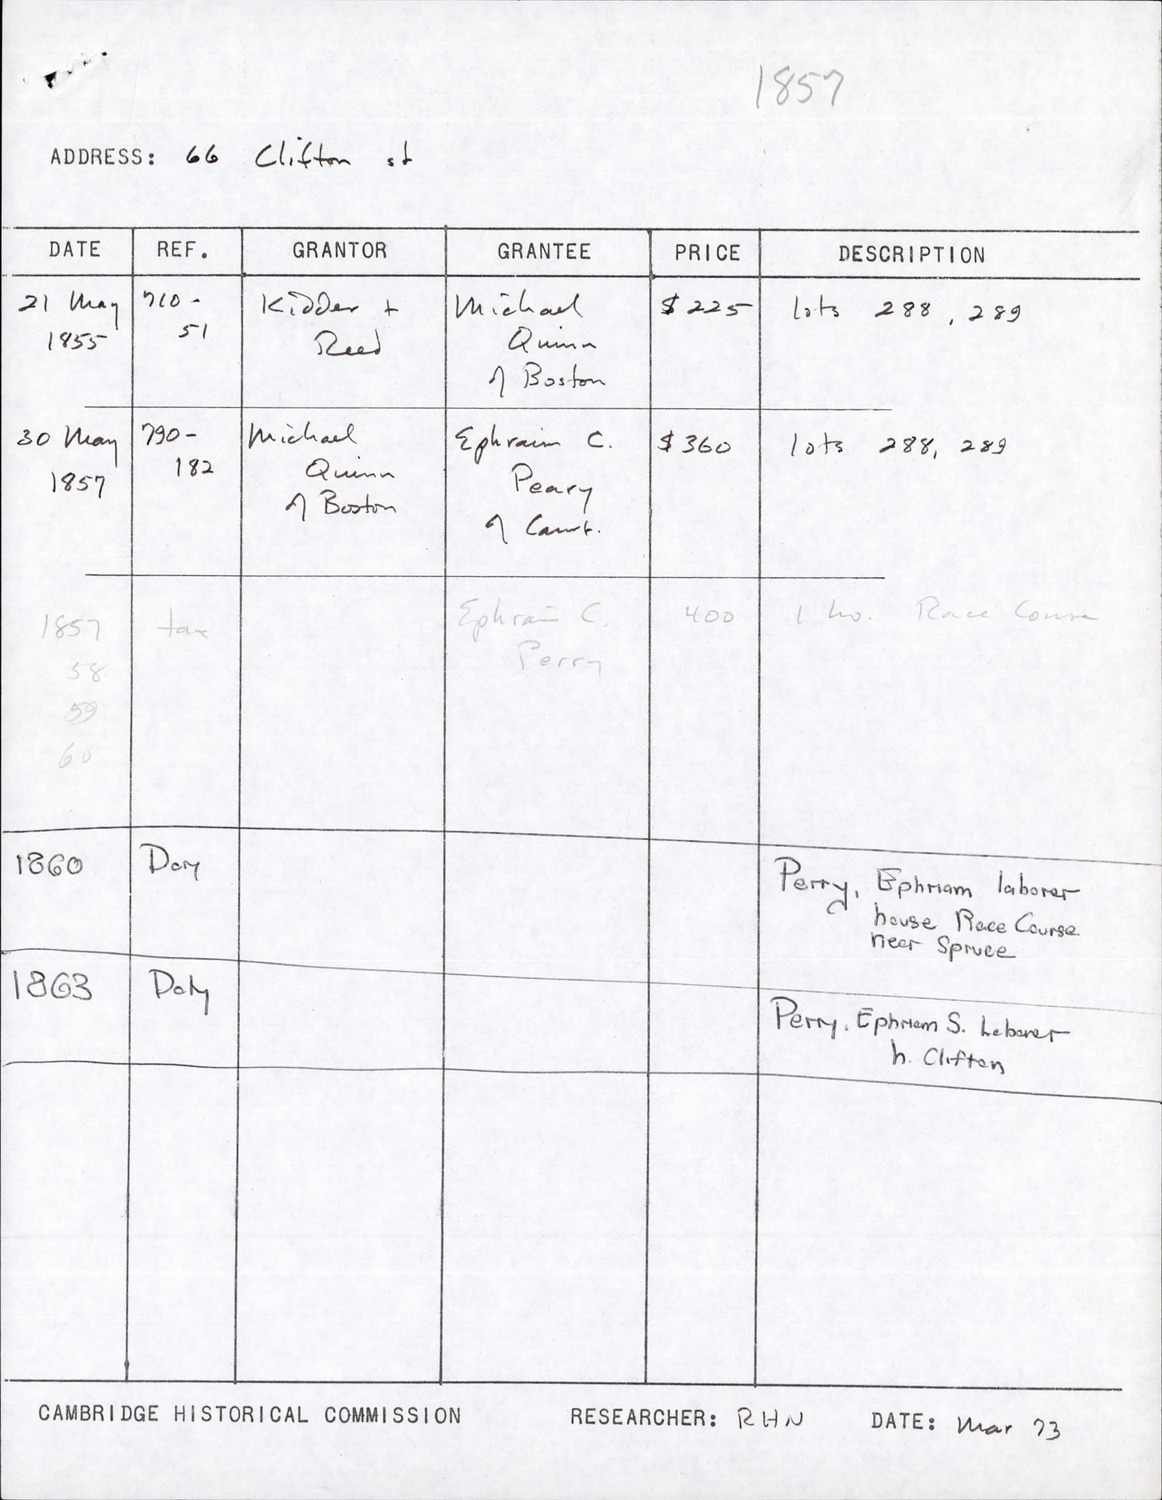 1857
ADDRESS: 66 Clifton st
DATE REF. GRANTOR GRANTEE PRICE DESCRIPTION
21 May 710- Kidder + Michael $225 lots 288, 289
1855 51 Reed Quinn
of Boston
30 May 790- Michael Ephraim C. $360 lots 288, 289
1857 182 Quinn Peary
of Boston of Camb.
1857 tax Ephraim C. 400 1 ho. Race Course
58 Perry
59
60
1860 Perry, Ephriam laborer
house Race Course
near Spruce
1863 Perry, Ephriam S. Laborer
h. Clifton
CAMBRIDGE HISTORICAL COMMISSION RESEARCHER: RHN DATE: Mar 73